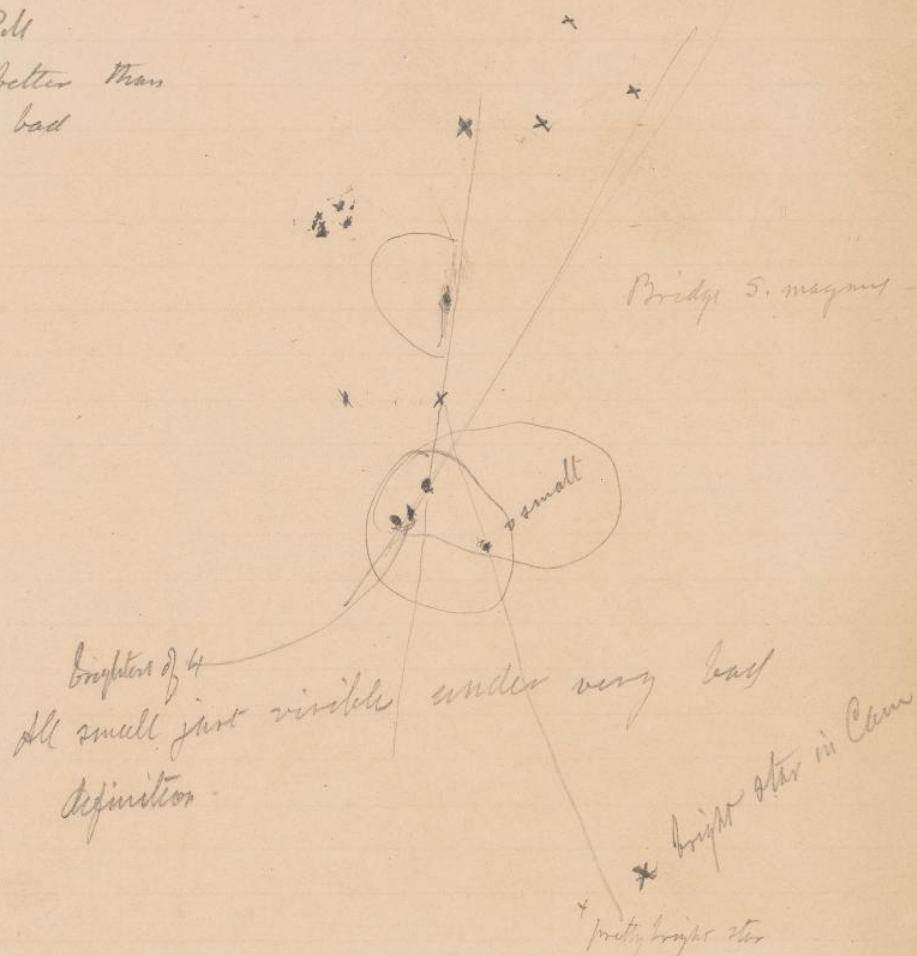 better than
bad
Bridge S. magnus
small
brightest of 4
All small just visible under very bad
definition
bright star in Cam
pretty bright star